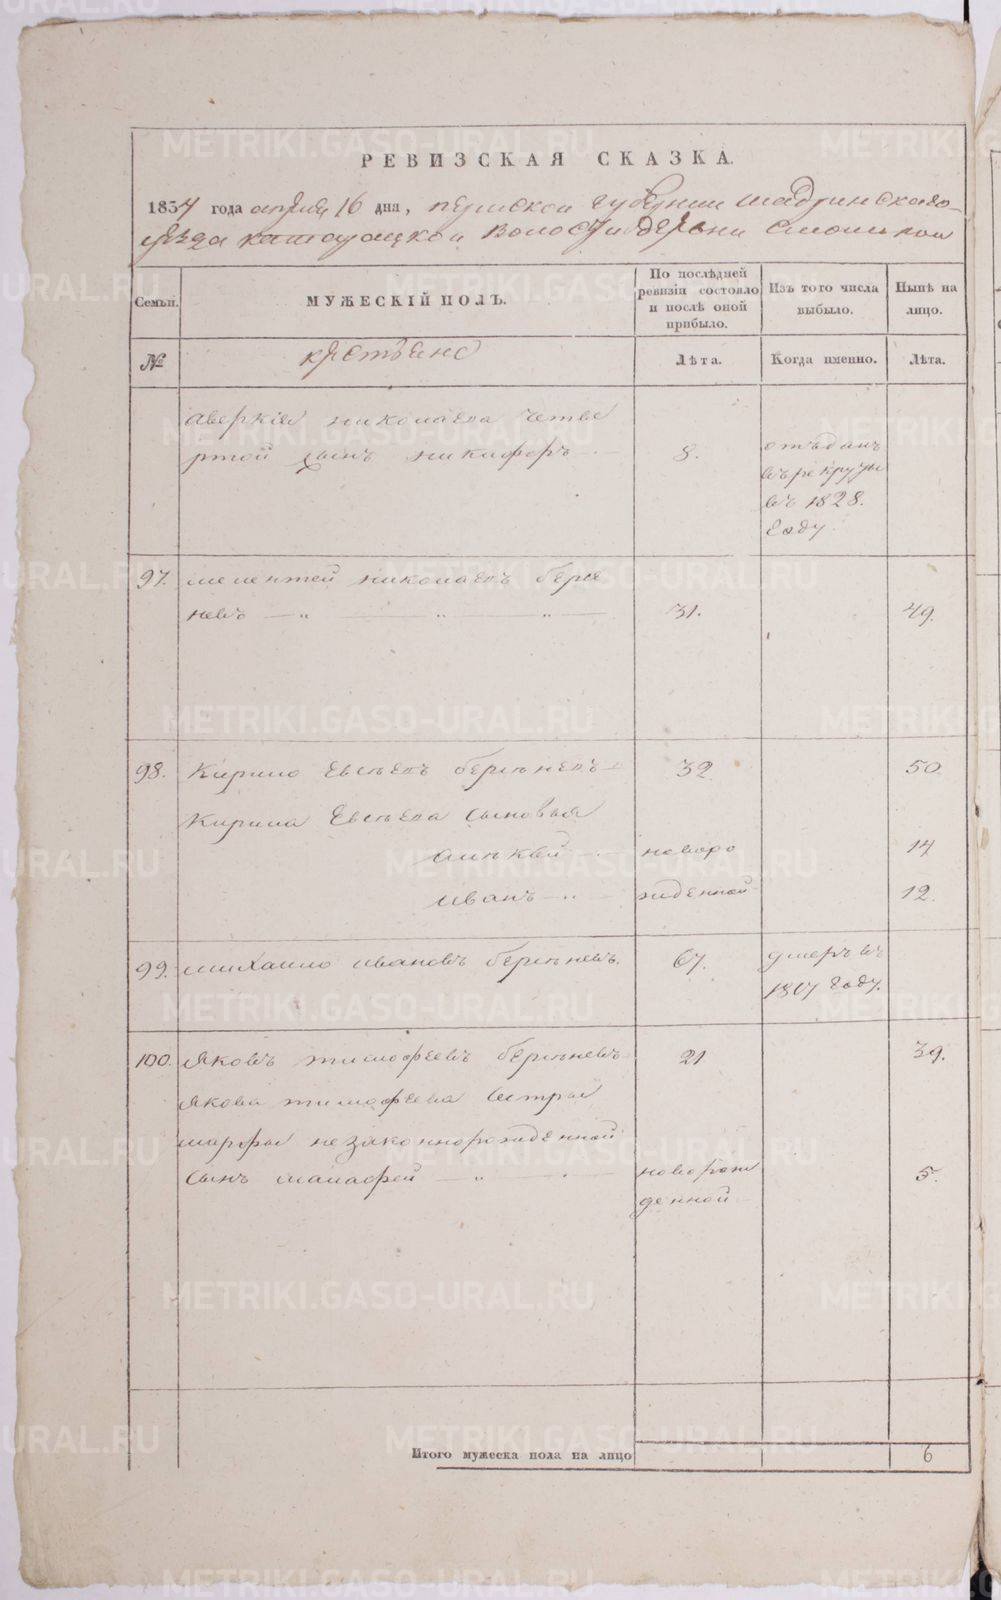 РЕВИЗСКАЯ СКАЗКА.
1834 года апреля 16 дня, пермской губернии шадринскаго
уѣзда катайской волости деревни
Семьи. МУЖЕСКІЙ ПОЛЪ. По послѣдней ревизіи состояло и послѣ оной прибыло. Изъ того числа выбыло. Нынѣ на лицо.
№ крестьяне Лѣта. Когда именно. Лѣта.
аверкия николаева четве
ртой сынъ никифоръ 8. отъданъ
въ рекруты
въ 1828.
году.
97. мелентей николаевъ берсе
невъ 31. 49.
98. Кирило Евсѣевъ берсѣневъ 32 50.
Кирила Евсѣева сыновья
алѣкѣй новоро 14
иванъ жденной 12.
99. михаило ивановъ берсѣневъ. 67. умеръ въ
году.
100. яковъ тимофеевъ берсѣневъ 21 39.
якова тимофеева сестры
марфы незаконнорожденной
сынъ новорож 5.
денной
Итого мужеска пола на лицо 6
METRIKI.GASO-URAL.RU